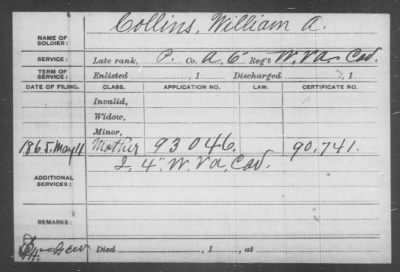 NAME OF SOLDIER: Collins, William A.
SERVICE: Late rank, P. Co. A, 6 Reg't W. Va Cav.
TERM OF SERVICE: Enlisted , 1 Discharged , 1
DATE OF FILING. CLASS. APPLICATION NO. LAW. CERTIFICATE NO.
Invalid,
Widow,
Minor,
1865. May 11 Mother 93046. 90,741.
ADDITIONAL SERVICES: I, 4" W. Va Cav.
REMARKS:
Died , 1 , at